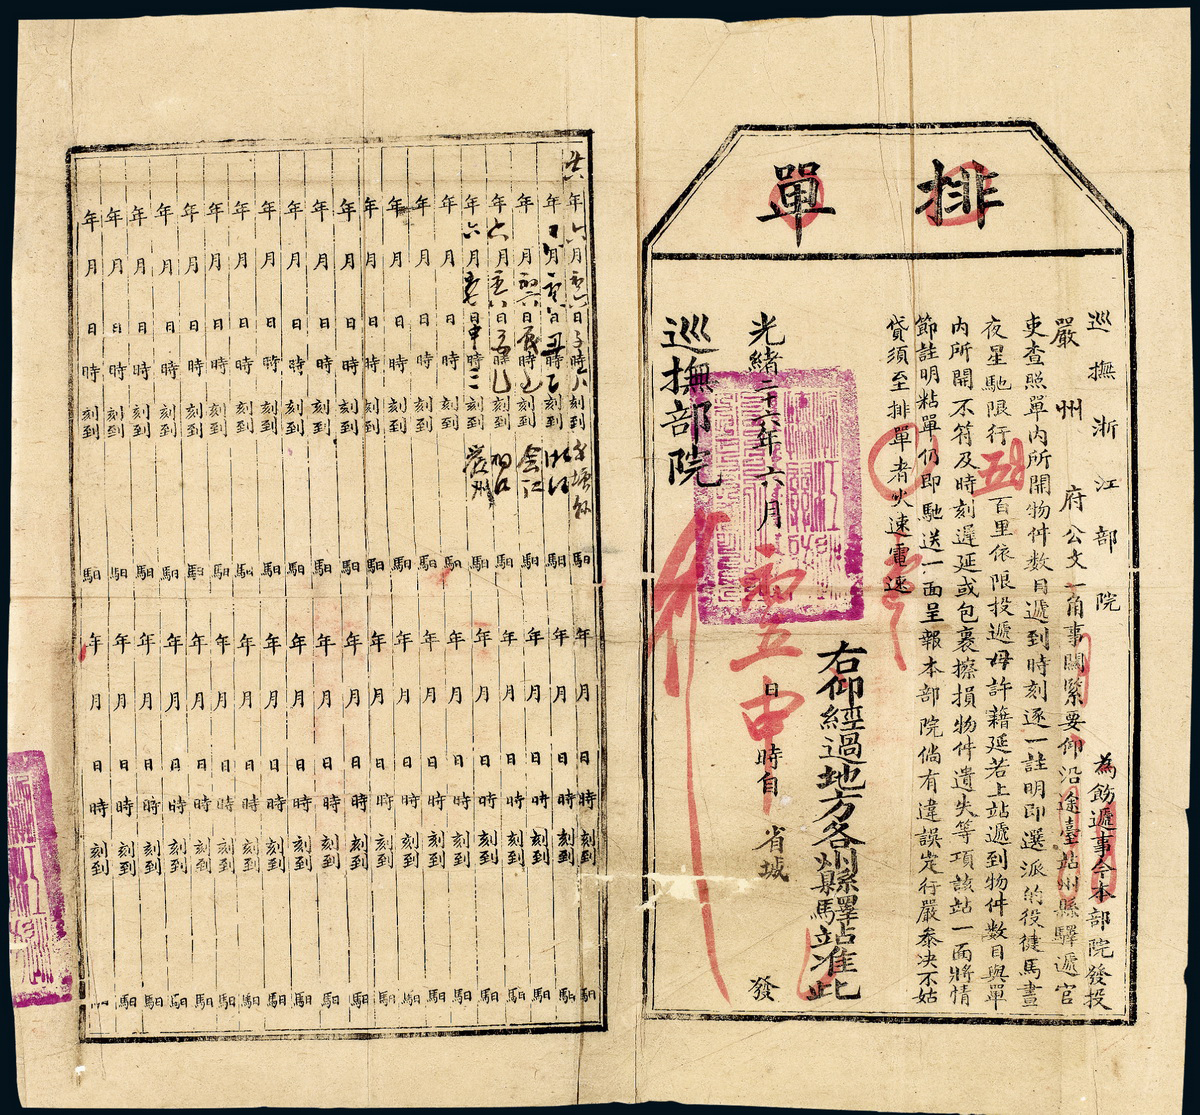 排單
巡撫浙江部院 為飭遞事今本部院發投
嚴州 府公文一角事關緊要仰沿途臺站州縣驛遞官
吏查照單內所開物件數目遞到時刻逐一註明即選派的役揵馬晝
夜星馳限行五百里依限投遞毋許藉延若上站遞到物件數目與單
內所開不符及時刻遲延或包裹擦損物件遺失等項該站一面將情
節註明粘單仍即馳送一面呈報本部院倘有違誤定行嚴叅决不姑
貸須至排單者火速電速
右仰經過地方各州縣驛站准此
光緒二十六年六月 初五 日申時自 省城 發
巡撫部院
廿六年六月 日 時 刻到 馹
年 月 日 時 刻到 馹
年 月 日 時 刻到 馹
年六月 日 時 刻到 馹
年六月 日申時三刻到嚴州 馹
年 月 日 時 刻到 馹
年 月 日 時 刻到 馹
年 月 日 時 刻到 馹
年 月 日 時 刻到 馹
年 月 日 時 刻到 馹
年 月 日 時 刻到 馹
年 月 日 時 刻到 馹
年 月 日 時 刻到 馹
年 月 日 時 刻到 馹
年 月 日 時 刻到 馹
年 月 日 時 刻到 馹
年 月 日 時 刻到 馹
年 月 日 時 刻到 馹
年 月 日 時 刻到 馹
年 月 日 時 刻到 馹
年 月 日 時 刻到 馹
年 月 日 時 刻到 馹
年 月 日 時 刻到 馹
年 月 日 時 刻到 馹
年 月 日 時 刻到 馹
年 月 日 時 刻到 馹
年 月 日 時 刻到 馹
年 月 日 時 刻到 馹
年 月 日 時 刻到 馹
年 月 日 時 刻到 馹
年 月 日 時 刻到 馹
年 月 日 時 刻到 馹
年 月 日 時 刻到 馹
年 月 日 時 刻到 馹
年 月 日 時 刻到 馹
年 月 日 時 刻到 馹
年 月 日 時 刻到 馹
年 月 日 時 刻到 馹
年 月 日 時 刻到 馹